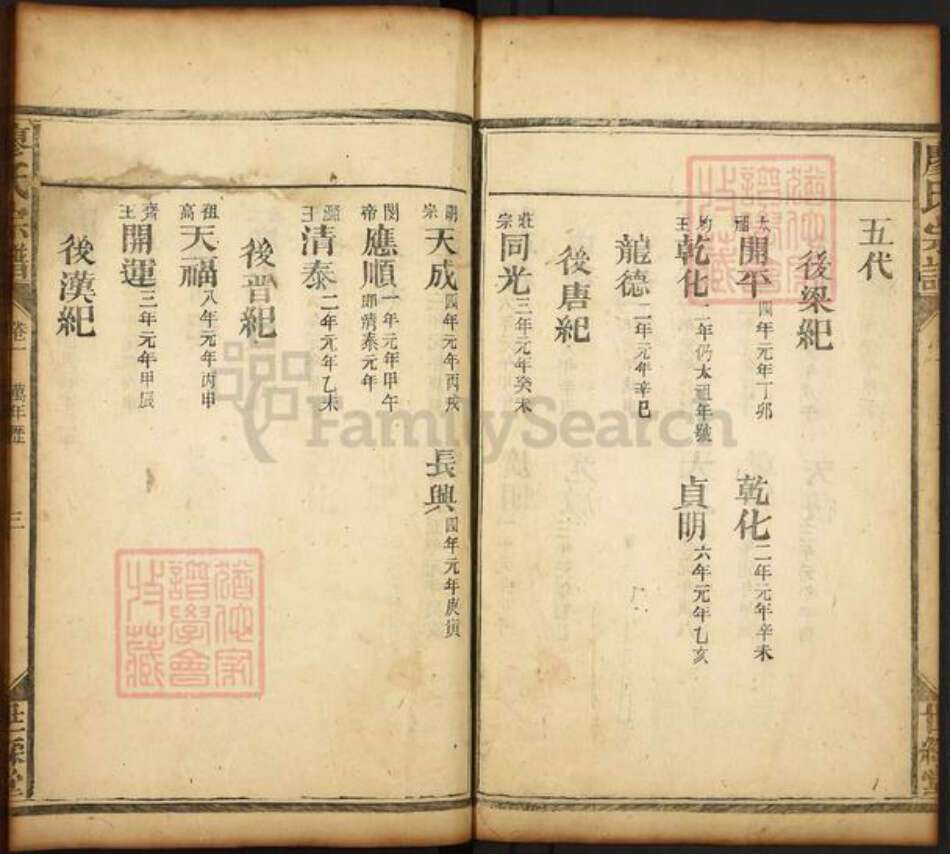 五代
後梁紀
太祖 開平 四年元年丁卯 乾化 二年元年辛未
均王 乾化 二年仍太祖年號 貞明 六年元年乙亥
龍德 二年元年辛巳
後唐紀
莊宗 同光 三年元年癸未
明宗 天成 四年元年丙戌 長興 四年元年庚寅
閔帝 應順 一年元年甲午 即清泰元年
潞王 清泰 二年元年乙未
後晉紀
高祖 天福 八年元年丙申
齊王 開運 三年元年甲辰
後漢紀
廖氏宗譜 卷一 萬年歷 三
廖氏宗譜
FamilySearch